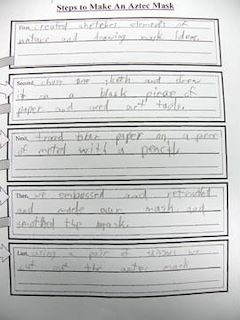 Steps to Make An Aztec Mask
First, created sketches elements of
nature and drawing mask Ideas.
Second, chose one sketh and drew
it on a blank piece of
paper and used art tools.
Next, traced blar paper on a piece
of metal with a pencil.
Then, we embossed and
and made our mask and
smothed the mask.
Last, using a pair of we
cut out the aztec mask.